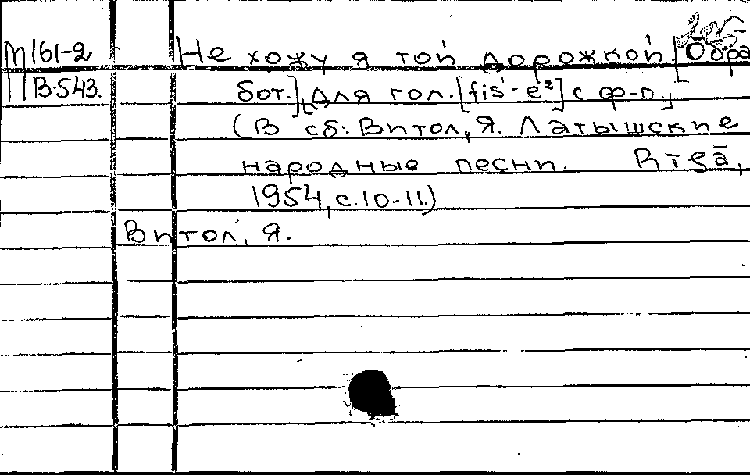 М 61-2 Не хожу я той дорожкой [Обра
В-543. бот.], для гол. [fis¹-e²] с ф-п.
(В сб: Витол, Я. Латышские
народные песни. Rīgā,
1954, с. 10-11.)
Витол, Я.